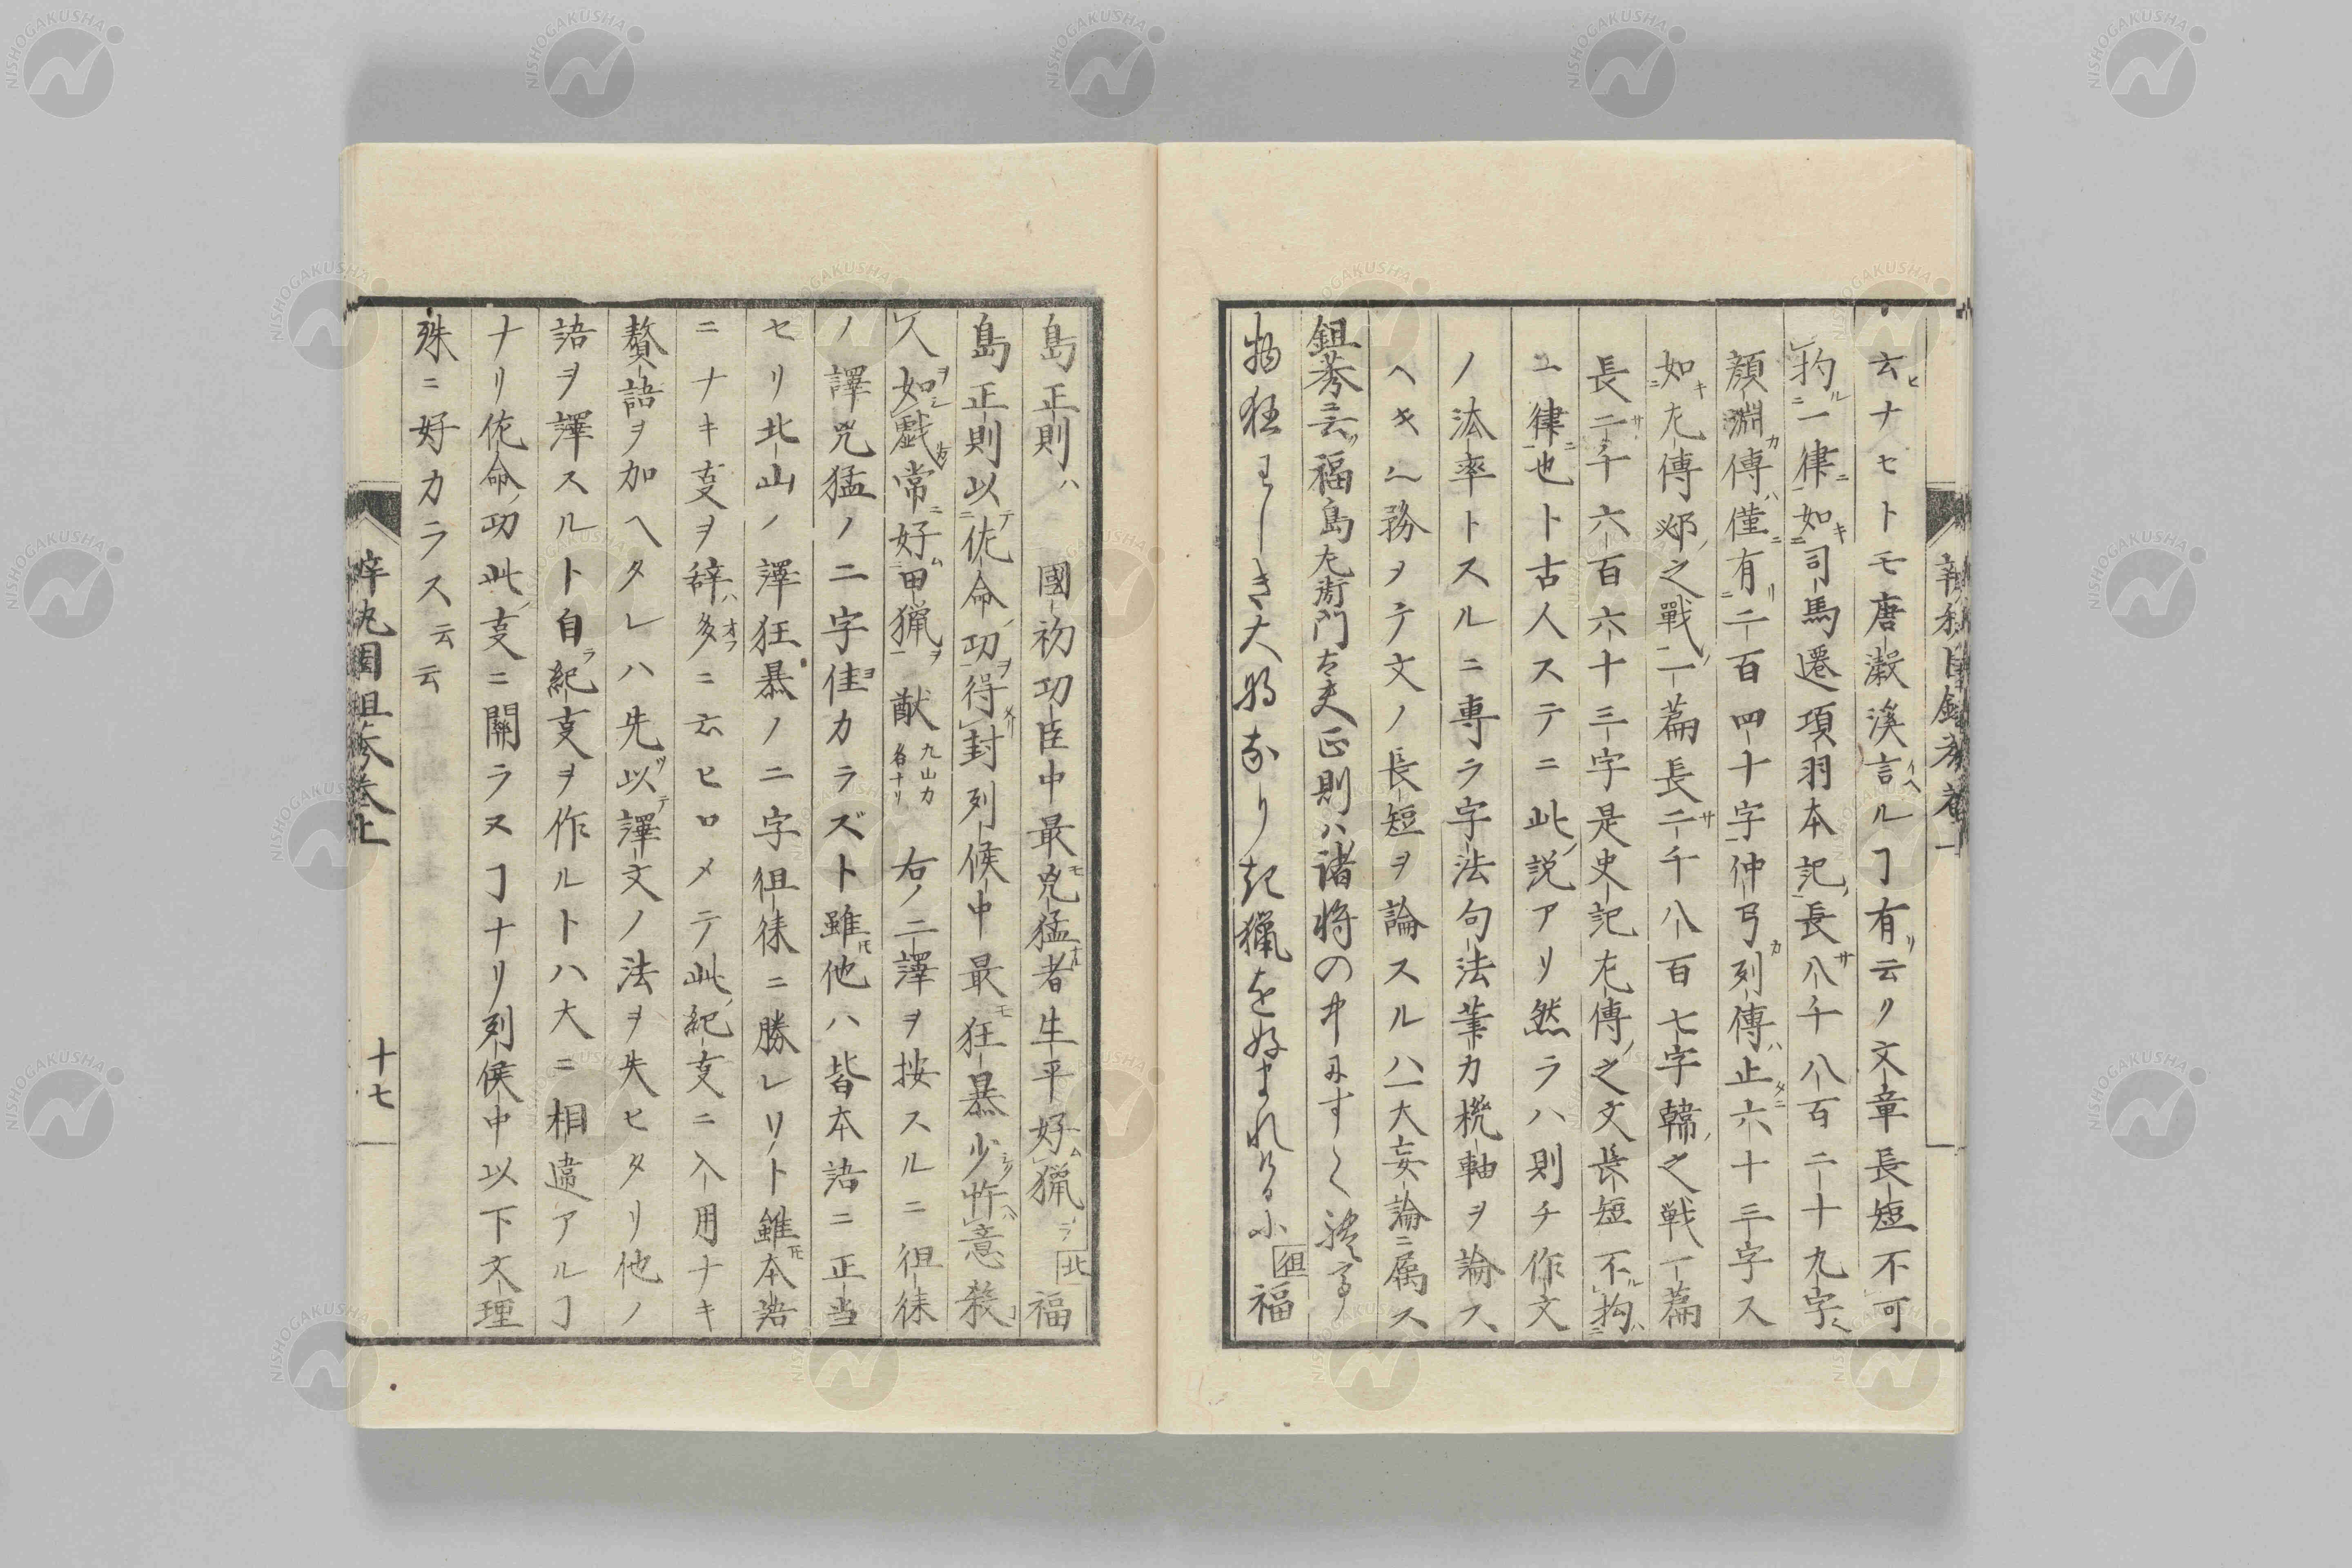 云ナセトモ唐瀫溪言ルヿ有云ク文章長短不可
拘一律如司馬遷項羽本記長八千八百二十九字
顔淵傳僅有二百四十字仲弓列傳止六十三字ス
如左傳邲之戰一篇長二千八百七字韓之戰一篇
長二千六百六十三字是史記左傳之文長短不拘
一律也ト古人ステニ此説アリ然ラハ則チ作文
ノ法率トスルニ専ラ字法句法筆力機軸ヲ論ス
ヘキヘ務ヲテ文ノ長短ヲ論スルハ一大妄論ニ属ス
鉏莠云福島左衛門太夫正則ハ諸将の中
物狂 き大 なり 猟を好まれける 徂 福
島正則ハ 國初功臣中最兇猛者生平好猟 北 福
島正則以佐命功得封列侯中最狂暴少忤意殺
人如戯常好田猟 猷 九山カ名ナリ 右ノ二譯ヲ按スルニ徂徠
ノ譯兇猛ノ二字佳カラズト雖他ハ皆本語ニ正当
セリ北山ノ譯狂暴ノ二字徂徠ニ勝レリト雖本語
ニナキ叓ヲ辞多ニ云ヒロメテ此紀叓ニ入用ナキ
贅語ヲ加ヘタレハ先以譯文ノ法ヲ失ヒタリ他ノ
語ヲ譯スルト自紀叓ヲ作ルトハ大ニ相違アルヿ
ナリ佐命功此叓ニ關ラヌヿナリ列侯中以下文理
殊ニ好カラス云云
十七
NISHOGAKUSHA